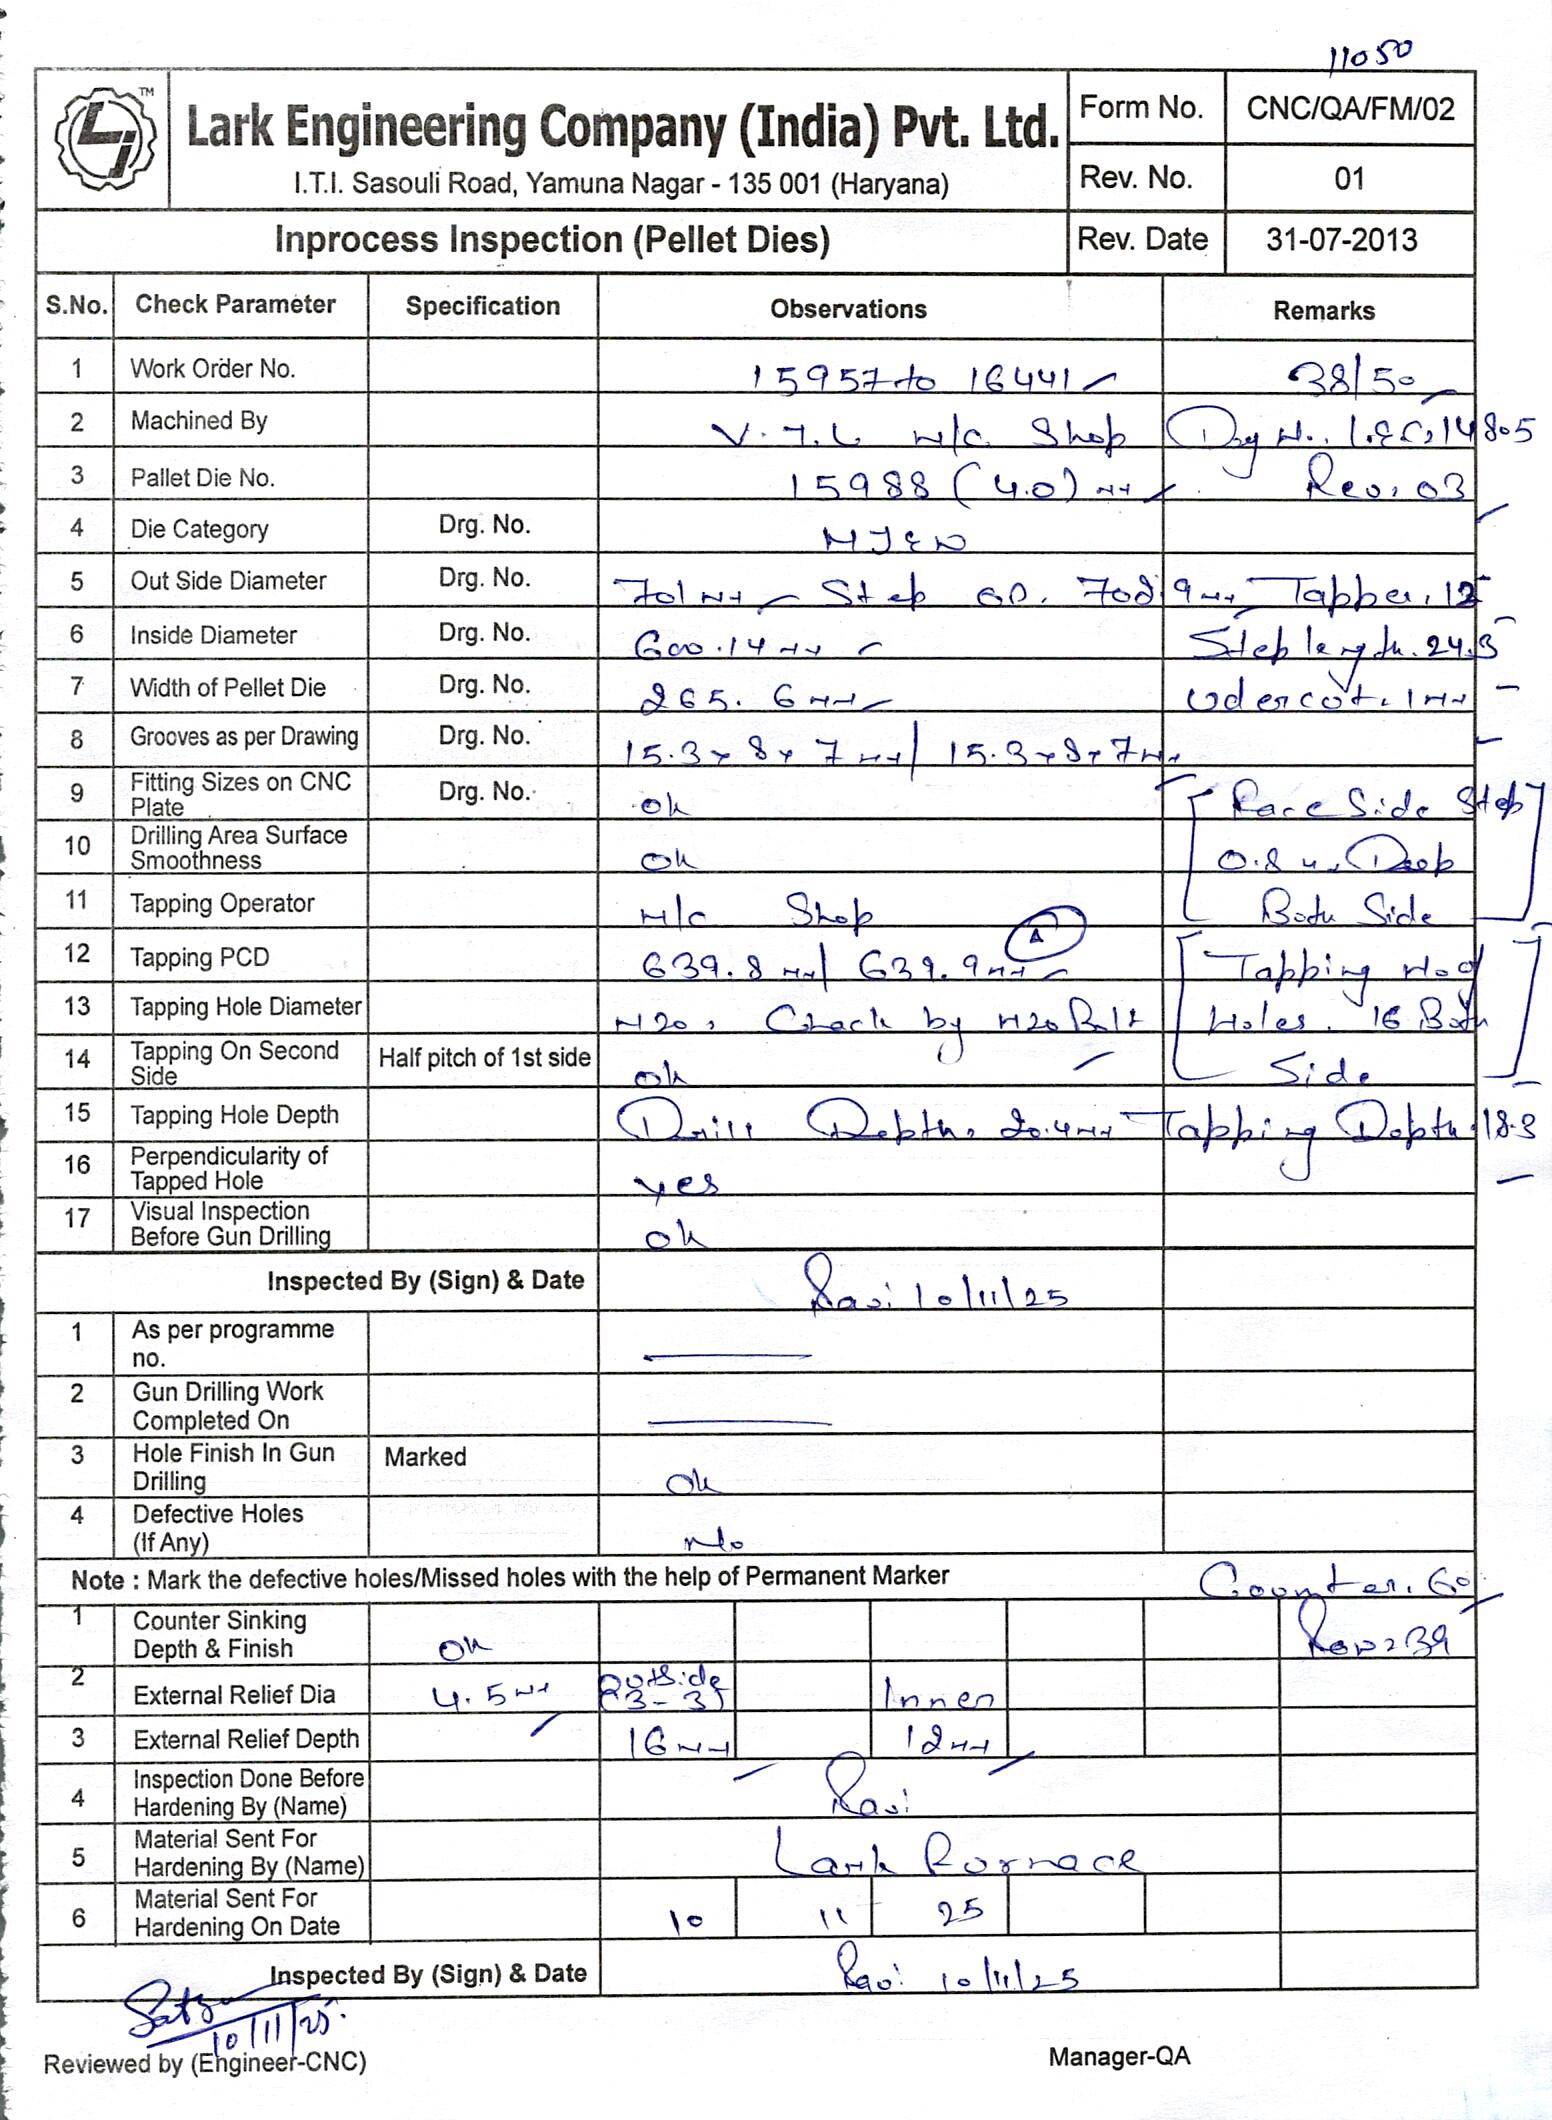 11050
TM
Lark Engineering Company (India) Pvt. Ltd.
I.T.I. Sasouli Road, Yamuna Nagar - 135 001 (Haryana)
Form No. CNC/QA/FM/02
Rev. No. 01
Inprocess Inspection (Pellet Dies) Rev. Date 31-07-2013
S.No. Check Parameter Specification Observations Remarks
1 Work Order No. 15957 to 16441 38/50
2 Machined By V.T.L M/c Shop Drg No. 14805
3 Pallet Die No. 15988 (4.0) Rev. 03
4 Die Category Drg. No.
5 Out Side Diameter Drg. No. 701 MM Step OD. 708.9 MM Tapper. 12
6 Inside Diameter Drg. No. 600.14 MM Step length. 24.3
7 Width of Pellet Die Drg. No. 265.6 MM Udercut. 1 MM
8 Grooves as per Drawing Drg. No. 15.3x8x7 MM/ 15.3x8x7 MM
9 Fitting Sizes on CNC Plate Drg. No. ok [Face Side Step
10 Drilling Area Surface Smoothness ok 0.8 Deep
11 Tapping Operator M/c Shop Both Side]
12 Tapping PCD 639.8 MM/ 639.9 MM A [Tapping No of
13 Tapping Hole Diameter M20, Check by M20 Bolt Holes. 16 Both
14 Tapping On Second Side Half pitch of 1st side ok Side]
15 Tapping Hole Depth Drill Depth. 20.4 MM Tapping Depth. 18.3
16 Perpendicularity of Tapped Hole yes
17 Visual Inspection Before Gun Drilling ok
Inspected By (Sign) & Date Ravi 10/11/25
1 As per programme no.
2 Gun Drilling Work Completed On
3 Hole Finish In Gun Drilling Marked Ok
4 Defective Holes (If Any) No
Note : Mark the defective holes/Missed holes with the help of Permanent Marker Counter. 60
1 Counter Sinking Depth & Finish OK Row = 39
2 External Relief Dia 4.5 MM Outside (3-3) Inner
3 External Relief Depth 16 MM 12 MM
4 Inspection Done Before Hardening By (Name) Ravi
5 Material Sent For Hardening By (Name) Lark Furnace
6 Material Sent For Hardening On Date 10 11 25
Inspected By (Sign) & Date Ravi 10/11/25
10/11/25.
Reviewed by (Engineer-CNC) Manager-QA